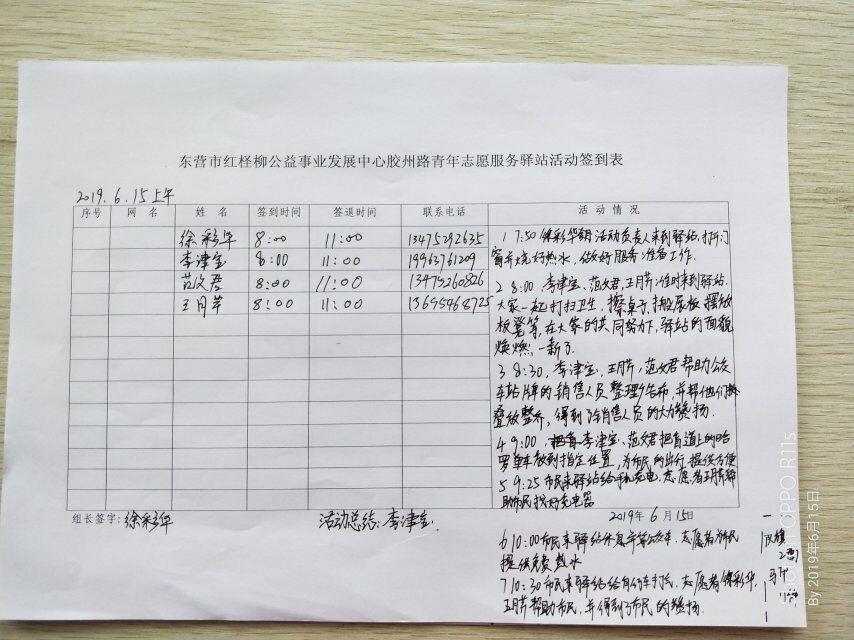 东营市红柽柳公益事业发展中心胶州路青年志愿服务驿站活动签到表
2019.6.15上午
序号 网 名 姓 名 签到时间 签退时间 联系电话 活 动 情 况
徐彩华 8:00 11:00 13475292635
李津宝 8:00 11:00 19963761209
范文君 8:00 11:00 13475260826
王月芹 8:00 11:00 13695468725
1 7:50 徐彩华 活动负责人来到驿站,打开门
窗并烧好热水,做好服务准备工作.
2 8:00 李津宝、范文君、王月芹准时来到驿站,
大家一起打扫卫生,擦桌子,搬展板,摆放
板凳等,在大家的共同努力下,驿站的面貌
焕然一新了.
3 8:30,李津宝,王月芹,范文君帮助公交
车站牌的销售人员整理广告布,并帮他们
叠放整齐,得到了销售人员的大力赞扬.
4 9:00 李津宝、范文君把盲道上的哈
罗单车放到指定位置,为市民的出行提供方便
5 9:25市民来驿站给手机充电,志愿者王月芹帮
助市民找好充电器
组长签字:徐彩华 活动总结:李津宝 2019年6月15日
6 10:00市民来驿站休息等公交车,志愿者为市民
提供免费热水
7 10:30市民来驿站给自行车打气,志愿者徐彩华,
王月芹帮助市民,并得到了市民的赞扬.
Shot on OPPO R11s
By 2019年6月15日